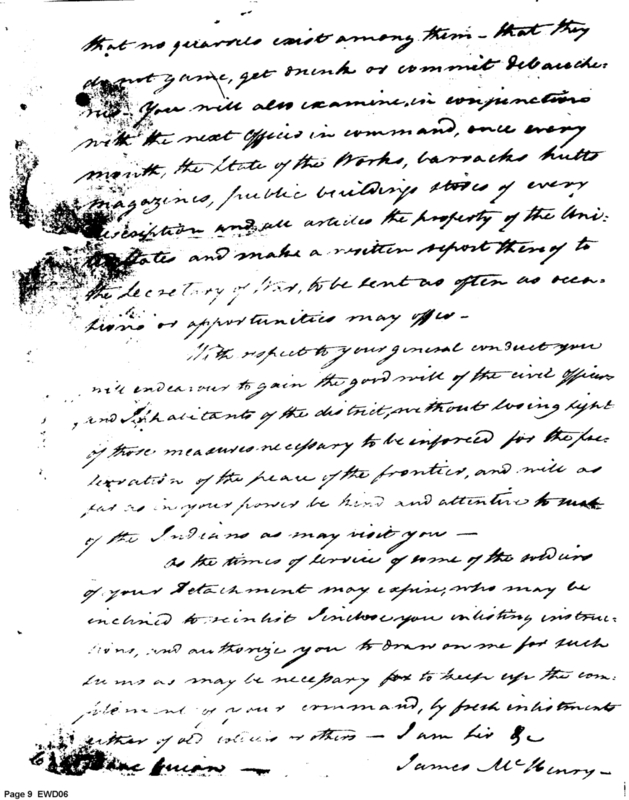 that no quarrels exist among them - that they
do not game, get drunk or commit debauche-
ries. You will also examine, in conjunction
with the next officer in command, once every
month, the State of the Works, barracks hutts
magazines, public buildings stores of every
description and all articles the property of the Uni-
States and make a written report thereof to
the Secretary of War, to be sent as often as occa-
sions or opportunities may offer -
With respect to your general conduct you
will endeavour to gain the good will of the civil Officers
and Inhabitants of the district, without losing sight
of those measures necessary to be inforced for the pre-
servation of the peace of the frontier, and will as
far as in your power be kind and attentive to such
of the Indians as may visit you —
As the times of service of some of the soldiers
of your Detachment may expire, who may be
inclined to reinlist I inclose you inlisting instruc-
tions, and authorize you to draw on me for such
sums as may be necessary for to keep up the com-
plement of your command, by fresh inlistments
either of old soldiers or others - I am Sir &c
James McHenry -
Page 9 EWD06